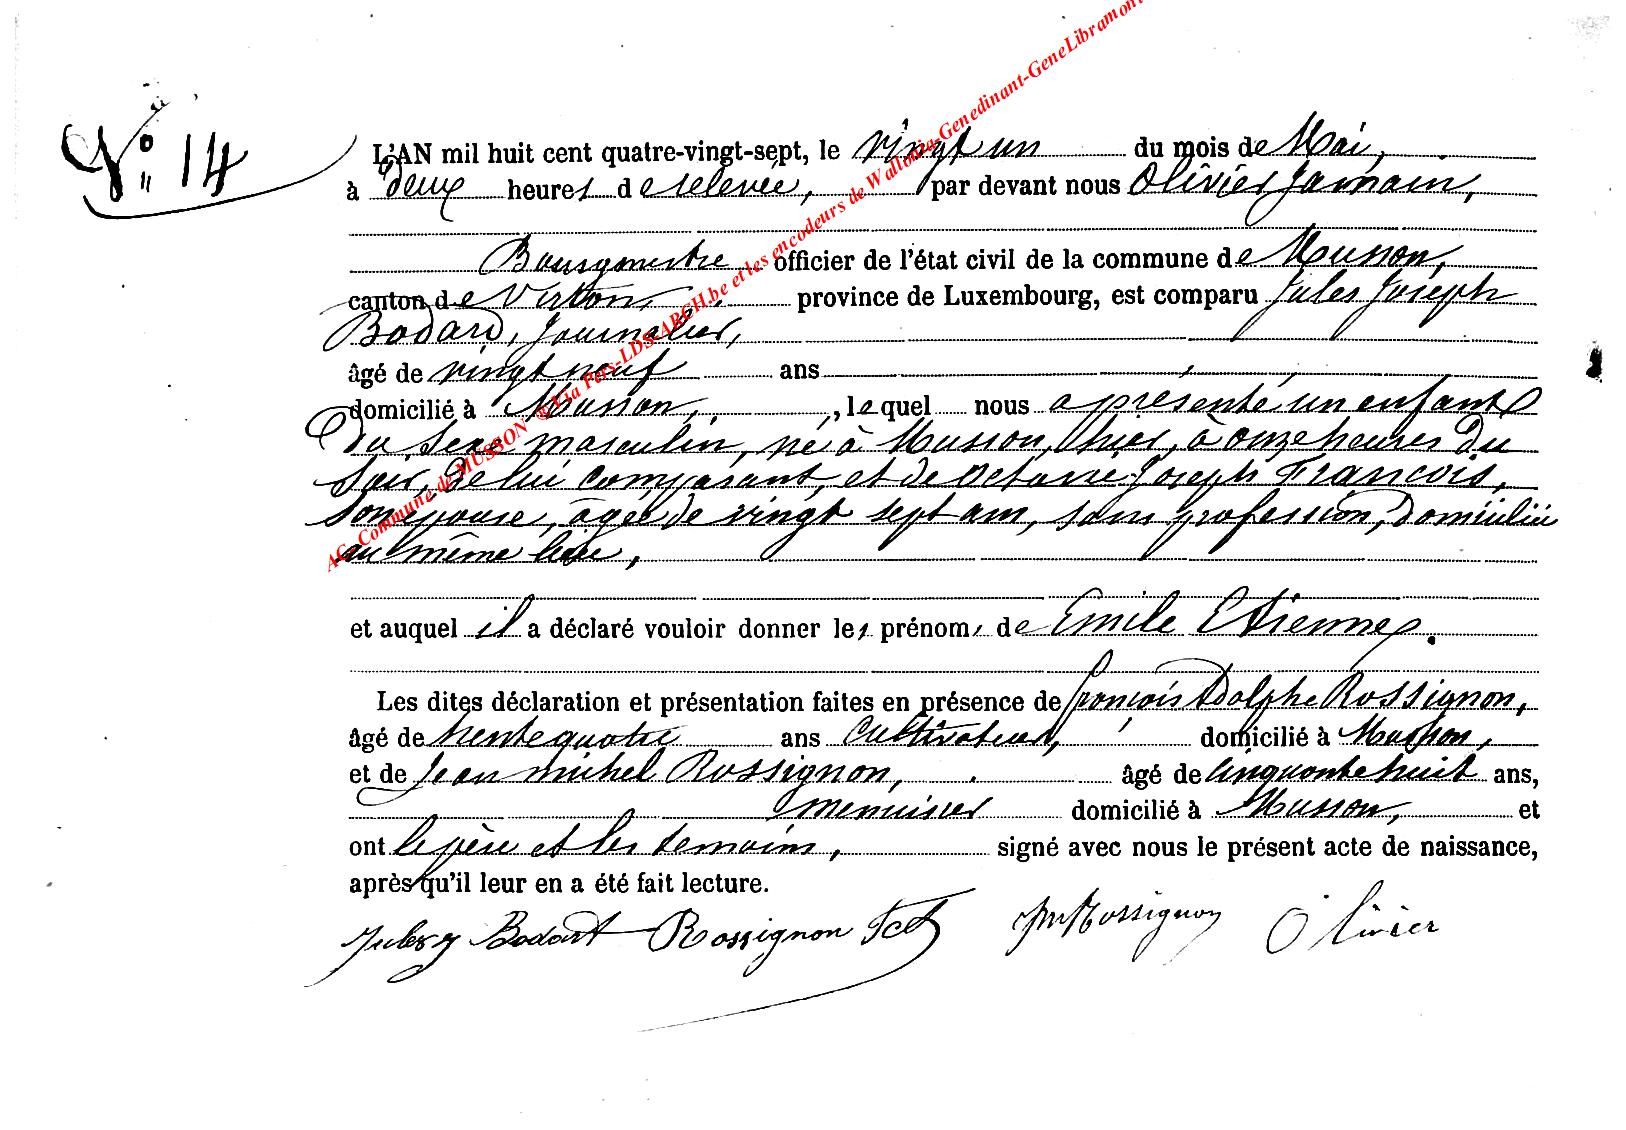 N° 14
L'AN mil huit cent quatre-vingt-sept, le vingt un du mois de Mai,
à deux heures de relevée, par devant nous Olivier Jamain,
Bourgmestre officier de l'état civil de la commune de Musson,
canton de Virton, province de Luxembourg, est comparu Jules Joseph
Bodard, Journalier,
âgé de vingt neuf ans
domicilié à Musson, lequel nous a présenté un enfant
du sexe masculin, né à Musson, hier, à onze heures du
soir, de lui comparant, et de Octavie Joseph François,
son épouse, âgée de vingt sept ans, sans profession, domiciliée
au même lieu,
et auquel il a déclaré vouloir donner les prénoms de Emile Etienne.
Les dites déclaration et présentation faites en présence de françois Adolphe Rossignon,
âgé de trente quatre ans Cultivateur, domicilié à Musson,
et de Jean michel Rossignon, âgé de cinquante huit ans,
menuisier domicilié à Musson, et
ont le père et les témoins, signé avec nous le présent acte de naissance,
après qu'il leur en a été fait lecture.
Jules J Bodart Rossignon JM Rossignon Olivier
AC Commune de MUSSON © Via Fers-LDS-ARCH.be et les encodeurs de Wallonia-Genedinant-GeneLibramont